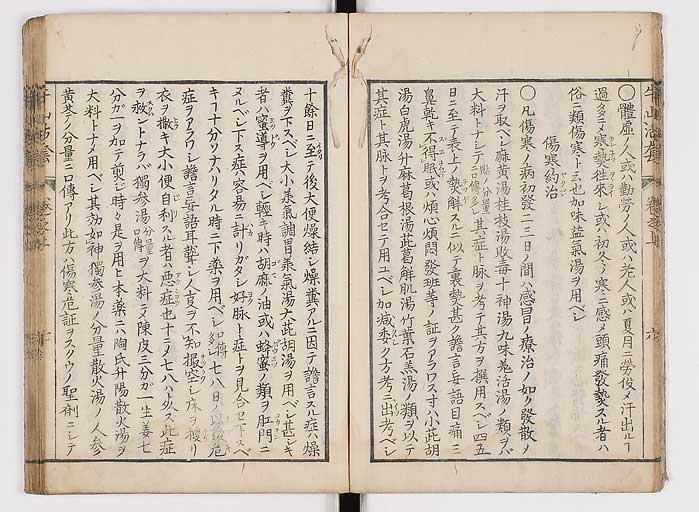 ○體虛ノ人或ハ勤勞ノ人或ハ老人或ハ夏月ニ勞役〆汗出ルヿ
過多ニ〆寒熱往來シ或ハ初冬ノ寒ニ感〆頭痛發熱スル者ハ
俗ニ類傷寒ト云也加味益氣湯ヲ用ベシ
傷寒約治
○凡傷寒ノ病初發二三日ノ間ハ感冒ノ療治ノ如ク發散ノ
汗ヲ取ベシ麻黄湯桂枝湯敗毒十神湯九味羗活湯ノ類ヲバ
大料ニナシテ其症ト脉ヲ考テ其方ヲ撰用スベシ四五
日ニ至テ表上ノ熱解スルニ似テ裏熱甚ク譫言妄語目痛ニ
鼻乾キ不得眠或ハ煩心煩悶發班等ノ証ヲアラワス寸ハ小茈胡
湯白虎湯升麻葛根湯茈葛解肌湯竹葉石羔湯ノ類ヲ以テ
其症ト其脉トヲ考合セテ用ユベシ加減委ク方考ニ出考ベシ
牛山活套
卷之上
六
十餘日ニ至テ後大便燥結シ燥糞アルニ因テ譫言スル症ハ燥
糞ヲ下スベシ大小羕氣調胃羕氣湯大茈胡湯ヲ用ベシ甚シキ
者ハ蜜導ヲ用ベシ輕キ時ハ胡麻ノ油或ハ蜂蜜ノ類ヲ肛門ニ
ヌルベシ下ス症ハ容易ニ計リガタシ好脉ト症トヲ見合セ下スベ
キヿ十分ソナハリタル時ニ下藥ヲ用ベシ口傳多シ七八日ノ以後危
症ヲアラワシ譫言妄語耳聾シ人事ヲ不知撮空シ床ヲ摸リ
衣ヲ撒キ大小便自利スル者ハ悪症也十ニメ七八ハ死ス此症
ヲ救ントナラバ獨參湯ヲ大料ニメ陳皮三分か一生姜七
分か一ヲ加テ煎〆時々是ヲ用ヒ本藥ニハ陶氏升陽散火湯ヲ
大料トナ〆用ベシ其効如神獨參湯ノ分量散火湯ノ人參
黄芩ノ分量ニ口傳アリ此方ハ傷寒危証ヲスクウノ聖劑ニシテ
牛山活套